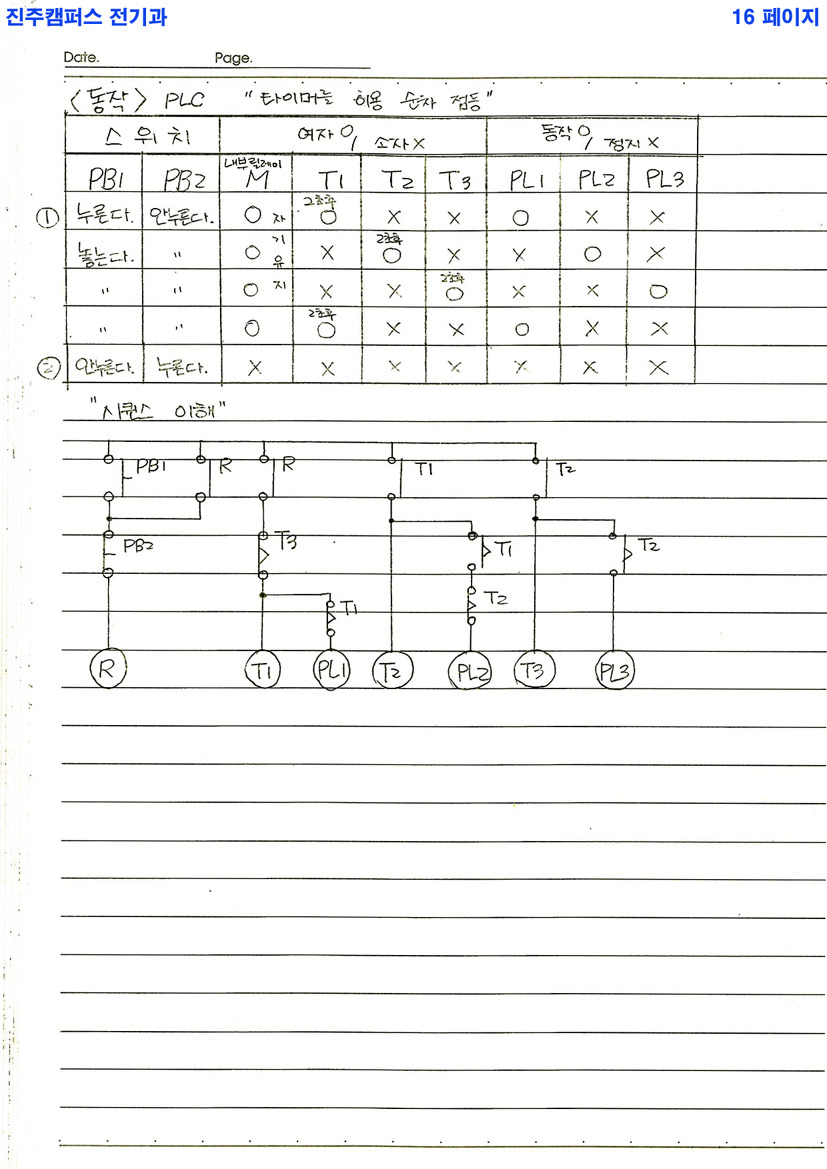 진주캠퍼스 전기과 16 페이지
Date. Page.
<동작> PLC "타이머를 이용 순차 점등"
스위치 여자 O, 소자 X 동작 O, 정지 X
PB1 PB2 내부릴레이 M T1 T2 T3 PL1 PL2 PL3
① 누른다. 안누른다. O 자 2초후 O X X O X X
놓는다. " O 기 유 X 2초후 O X X O X
" " O 지 X X 2초후 O X X O
" " O 2초후 O X X O X X
② 안누른다. 누른다. X X X X X X X
"시퀀스 이해"
PB1 R R T1 T2
PB2 T3 T1 T2
T1 T2
R T1 PL1 T2 PL2 T3 PL3